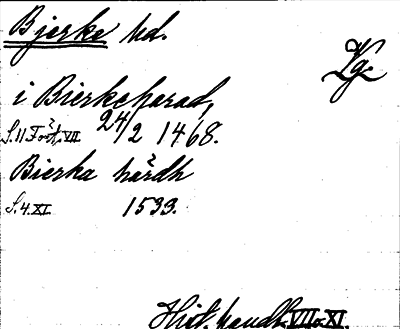 Bjerke hd.
Vg.
i Bierkeharad,
S. 11 Fört. VII 24/2 1468.
Bierka härdh
S. 4. XI 1533.
Hist. handl. VII o. XI.